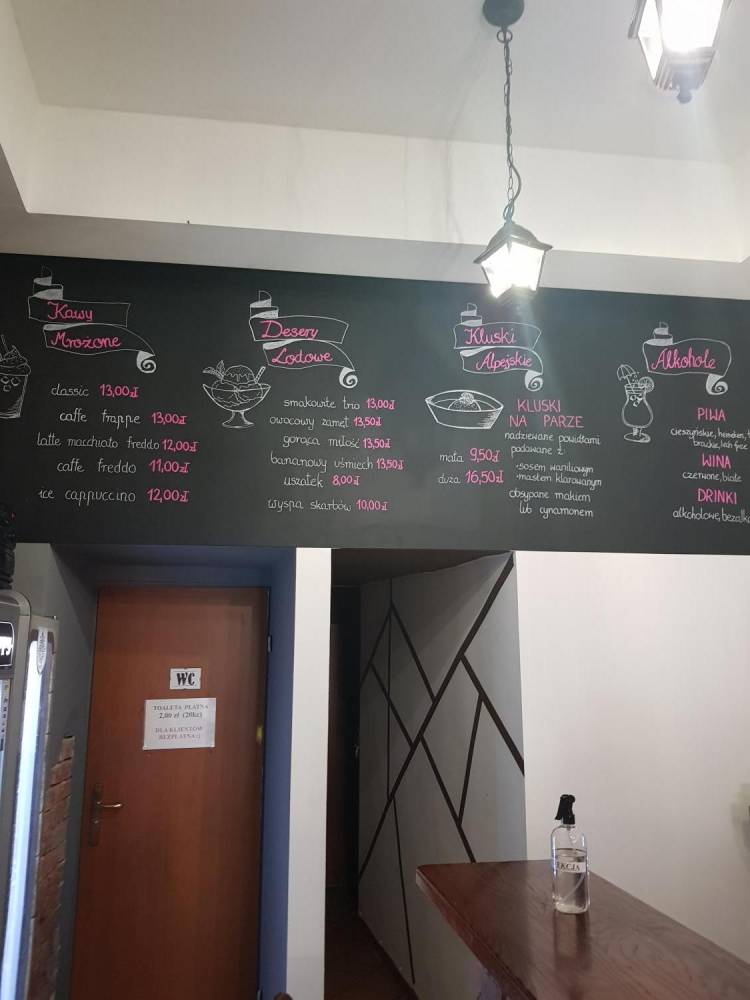 Kawy
Mrożone
classic 13,00zł
caffe frappe 13,00zł
latte macchiato freddo 12,00zł
caffe freddo 11,00zł
ice cappuccino 12,00zł
Desery
Lodowe
smakowite trio 13,00zł
owocowy zamęt 13,50zł
gorąca miłość 13,50zł
bananowy uśmiech 13,50zł
uszatek 8,00zł
wyspa skarbów 10,00zł
Kluski
Alpejskie
KLUSKI
NA PARZE
nadziewane powidłami
podawane z:
mała 9,50zł
duża 16,50zł
•sosem waniliowym
•masłem klarowanym
obsypane makiem
lub cynamonem
Alkohole
PIWA
cieszyńskie, heineken,
brackie, lech free
WINA
czerwone, białe
DRINKI
alkoholowe, bezalko
WC
TOALETA PŁATNA
2,00 zł (20kc)
DLA KLIENTÓW
BEZPŁATNA :)
EKCJA